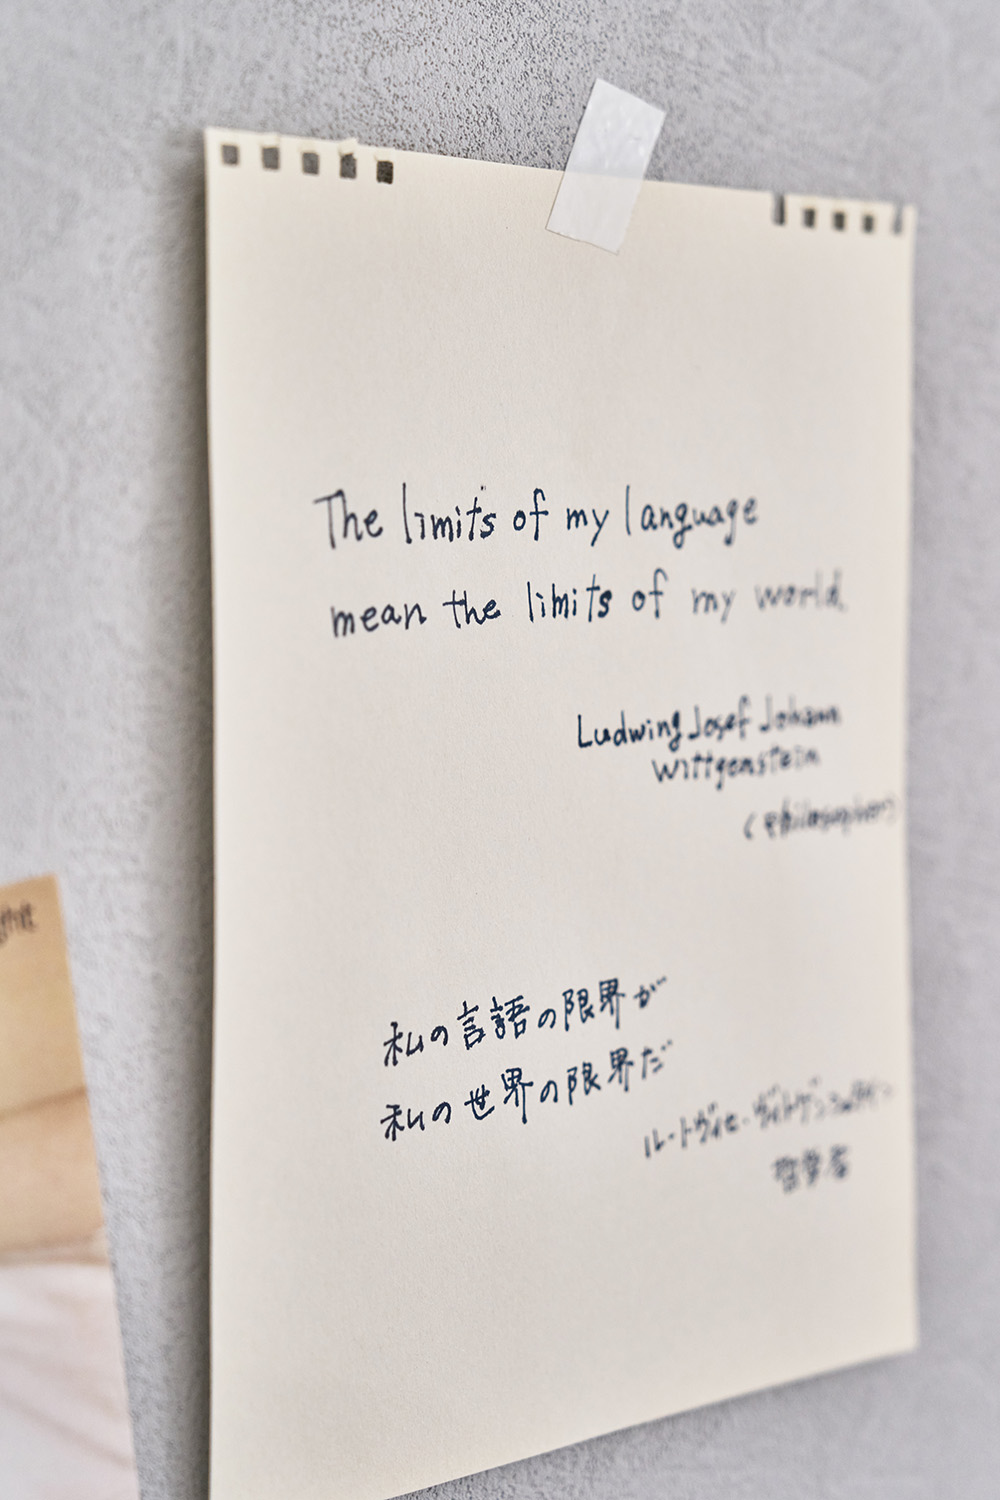 The limits of my language
mean the limits of my world.
Ludwing Josef Johann
Wittgenstein
(philosopher)
私の言語の限界が
私の世界の限界だ
ルートヴィヒ・ヴィトゲンシュタイン
哲学者